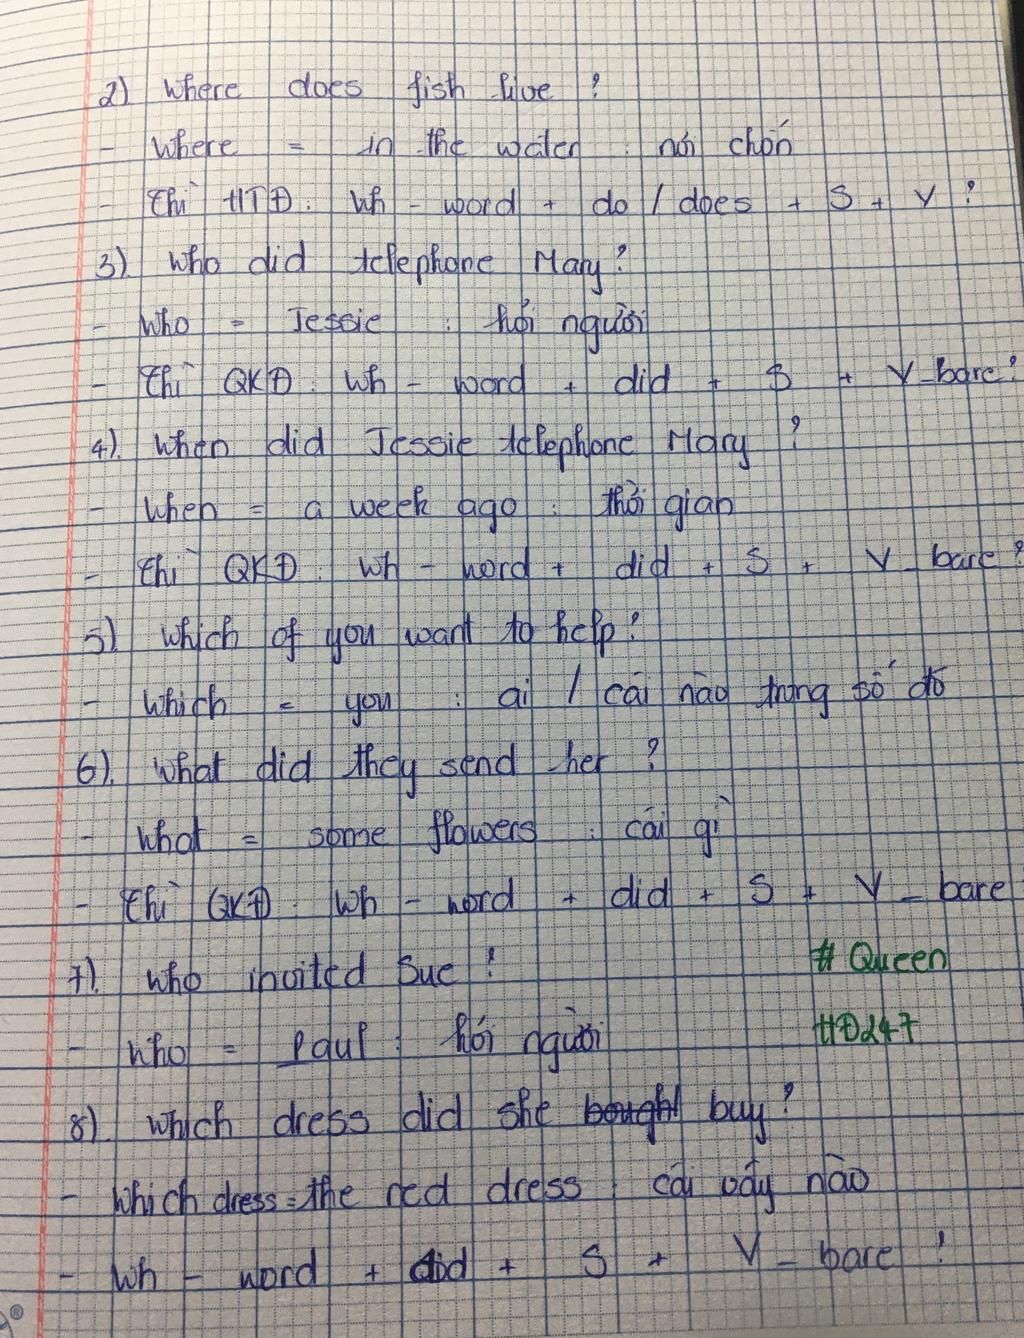 2) Where does fish live ?
- Where = in the water : nới chốn
- Thì HTĐ : Wh - word + do / does + S + V ?
3) Who did telephone Mary ?
- Who = Jessie : hỏi người
- Thì QKĐ : Wh - word + did + S + V_bare ?
4) When did Jessie telephone Mary ?
- When = a week ago : thời gian
- Thì QKĐ : Wh - word + did + S + V_bare ?
5) Which of you want to help ?
- Which = you : ai / cái nào trong số đó
6) What did they send her ?
- What = some flowers : cái gì
- Thì QKĐ : Wh - word + did + S + V_bare ?
7) Who invited Sue ?
# Queen
- Who = Paul : hỏi người
HĐ247
8) Which dress did she bought buy ?
- Which dress = the red dress : cái váy nào
- Wh - word + did + S + V_bare ?